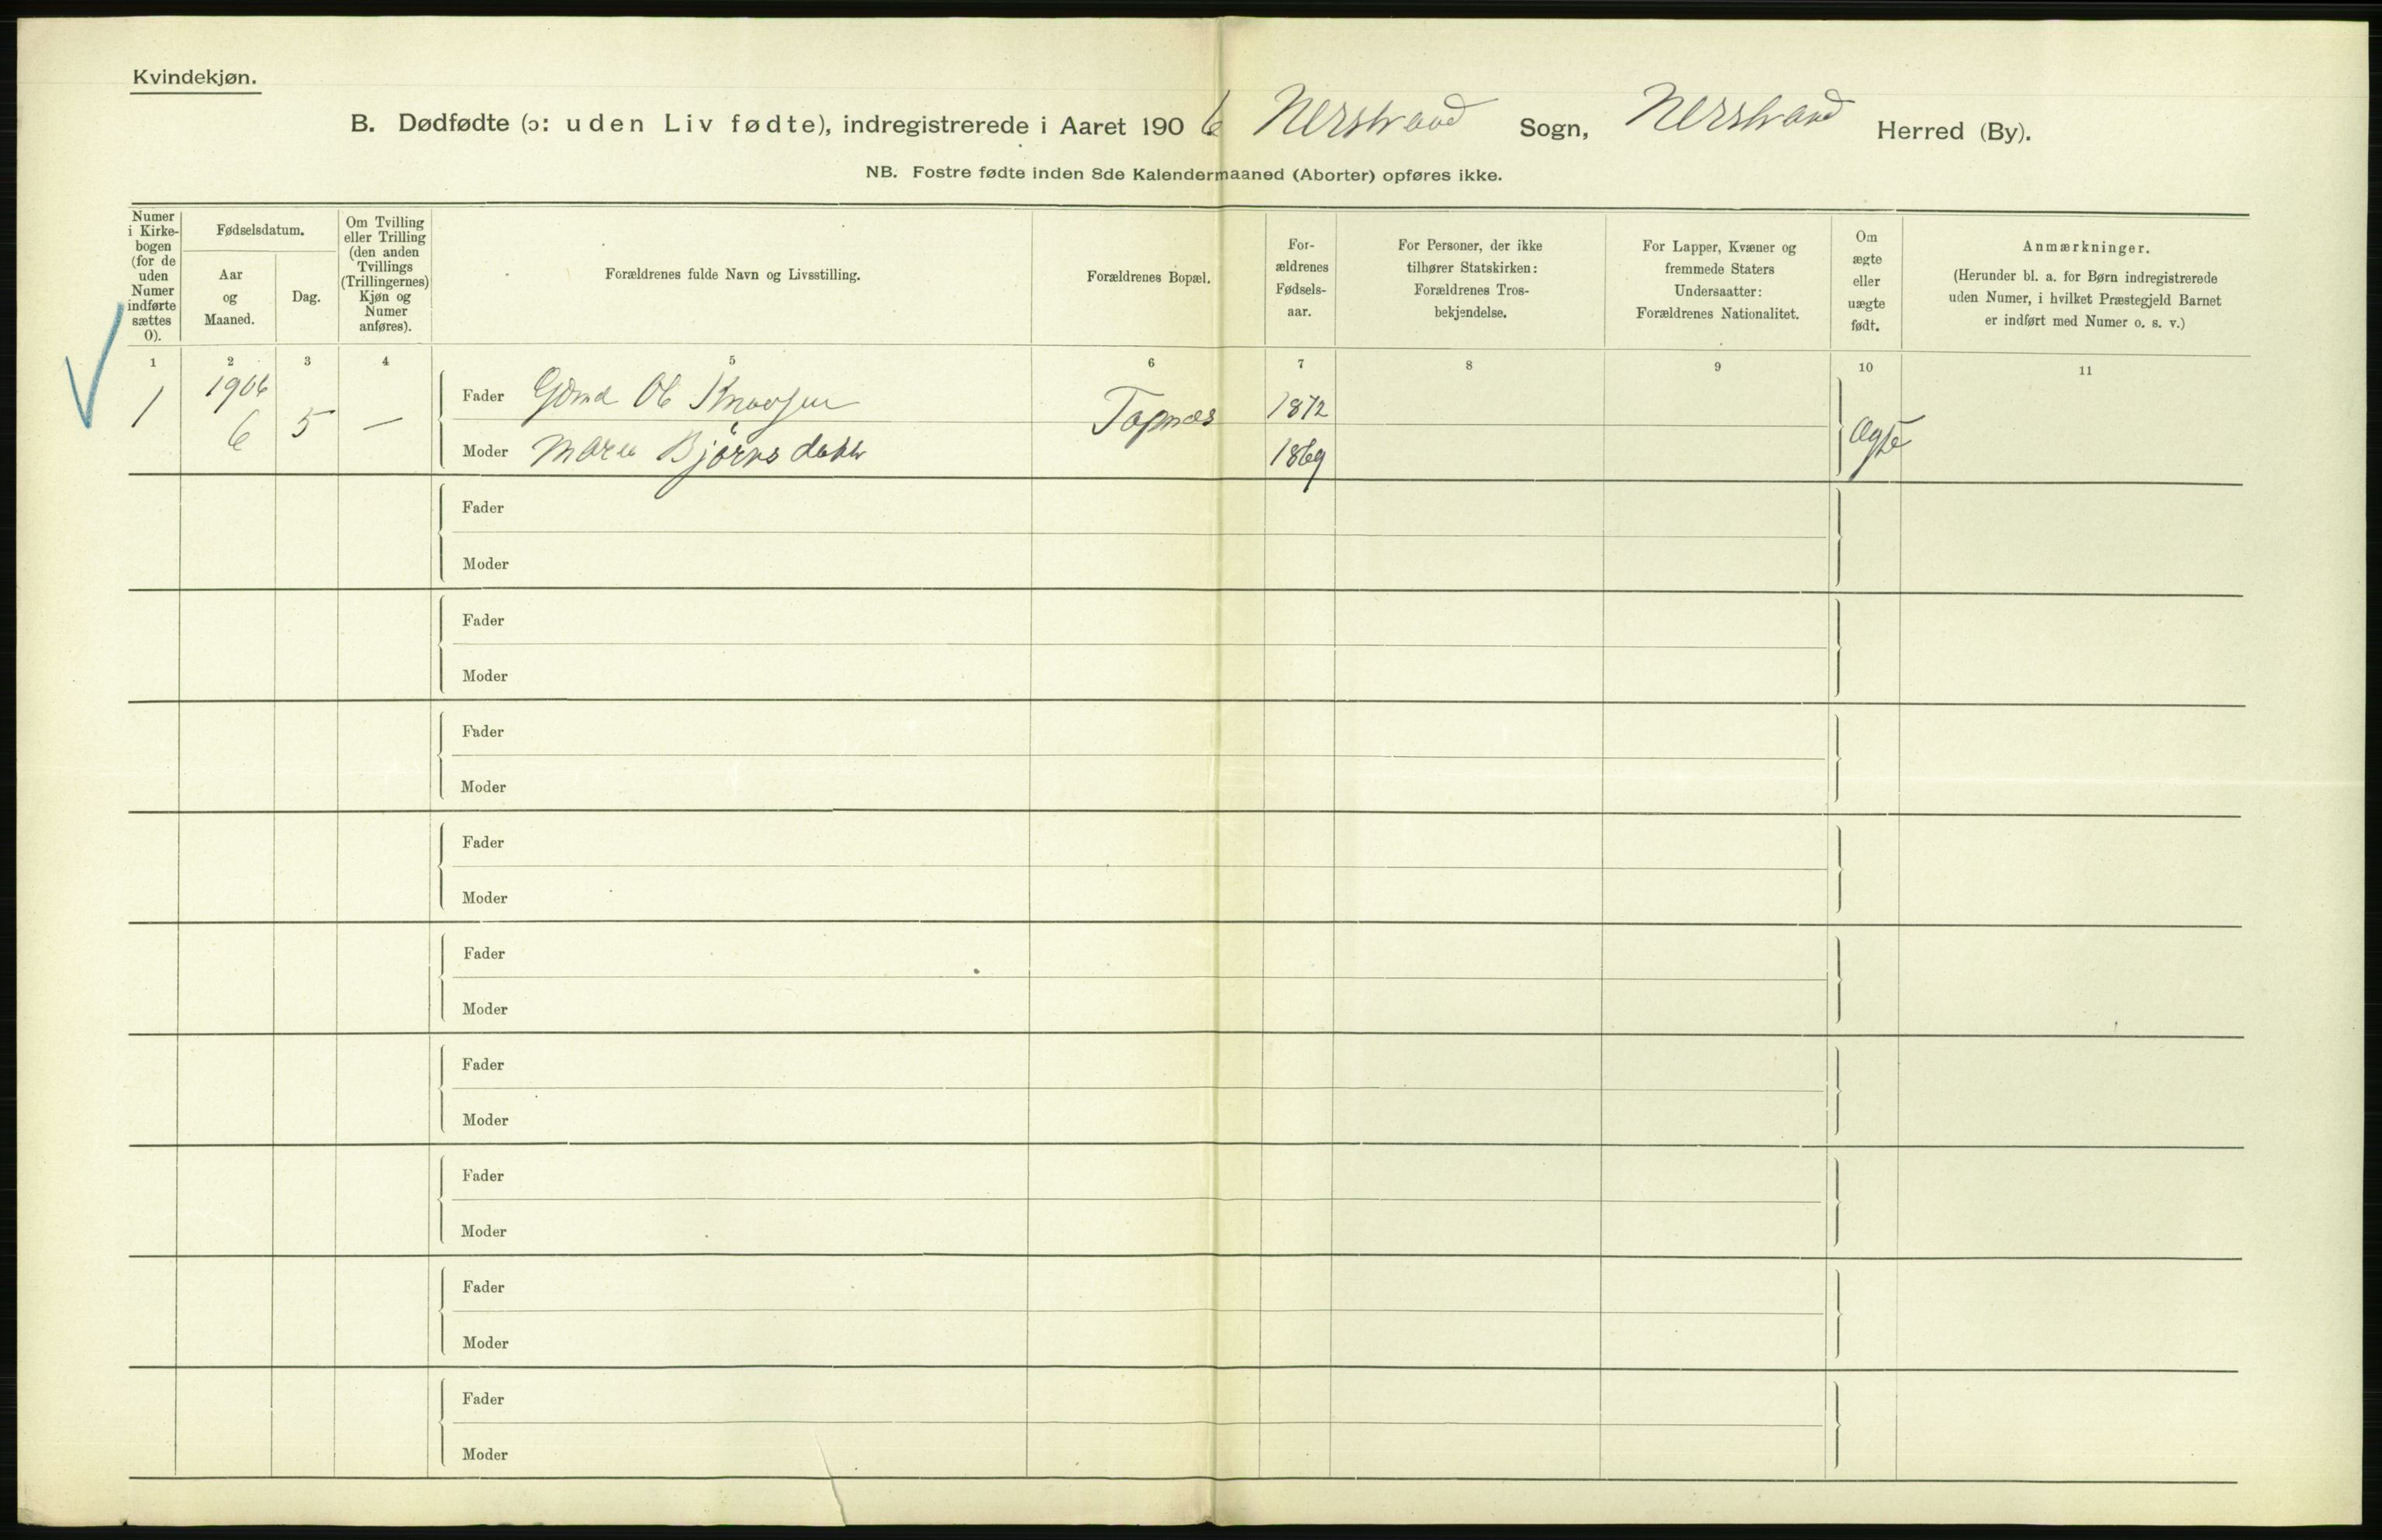 Kvindekjøn.
B. Dødfødte (ɔ: uden Liv fødte), indregistrerede i Aaret 1906 Nerstrand Sogn, Nerstrand Herred (By).
NB. Fostre fødte inden 8de Kalendermaaned (Aborter) opføres ikke.
Numer
i Kirke-
bogen
(for de
uden
Numer
indførte
sættes
0).
Fødselsdatum.
Aar
og
Maaned.
Dag.
Om Tvilling
eller Trilling
(den anden
Tvillings
(Trillingernes)
Kjøn og
Numer
anføres).
Forældrenes fulde Navn og Livsstilling.
Forældrenes Bopæl.
For-
ældrenes
Fødsels-
aar.
For Personer, der ikke
tilhører Statskirken:
Forældrenes Tros-
bekjendelse.
For Lapper, Kvæner og
fremmede Staters
Undersaatter:
Forældrenes Nationalitet.
Om
ægte
eller
uægte
født.
Anmærkninger.
(Herunder bl. a. for Børn indregistrerede
uden Numer, i hvilket Præstegjeld Barnet
er indført med Numer o. s. v.)
1 2 3 4 5 6 7 8 9 10 11
1 1906 6 5 —
Fader Gdmd Ole 1872
Moder Maria Bjørnsdatter 1869
Ægte
Fader
Moder
Fader
Moder
Fader
Moder
Fader
Moder
Fader
Moder
Fader
Moder
Fader
Moder
Fader
Moder
Fader
Moder